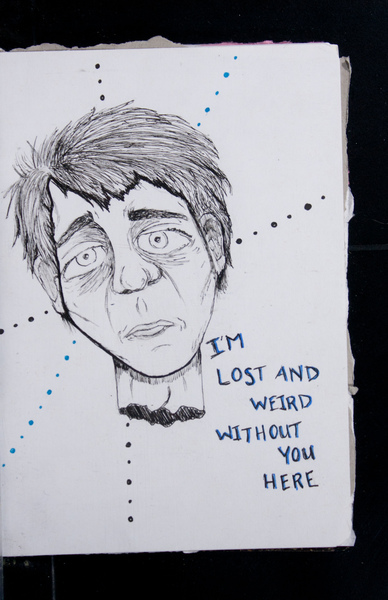 I'M
LOST AND
WEIRD
WITHOUT
YOU
HERE